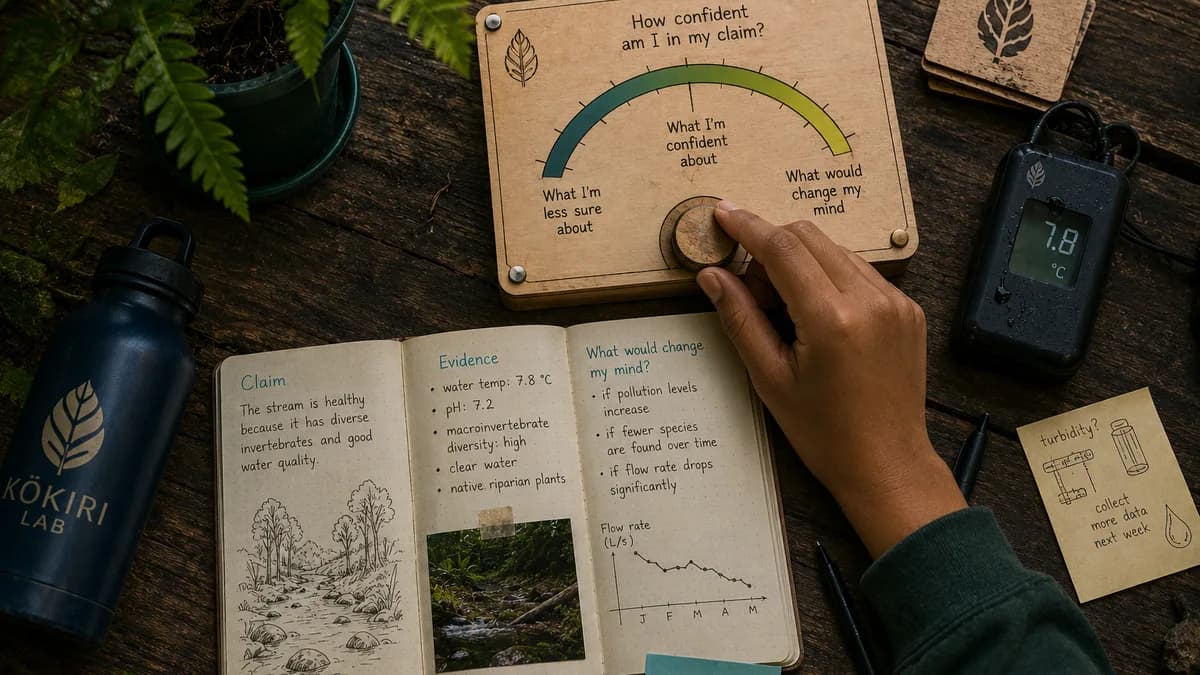 How confident
am I in my claim?
What I'm
confident
about
What I'm
less sure
about
What would
change my
mind
7.8
°C
KÖKIRI
LAB
Claim
The stream is healthy
because it has diverse
invertebrates and good
water quality.
Evidence
• water temp: 7.8 °C
• pH: 7.2
• macroinvertebrate
diversity: high
• clear water
• native riparian plants
What would change
my mind?
• if pollution levels
increase
• if fewer species
are found over time
• if flow rate drops
significantly
Flow rate
(L/s)
J F M A M
turbidity?
collect
more data
next week